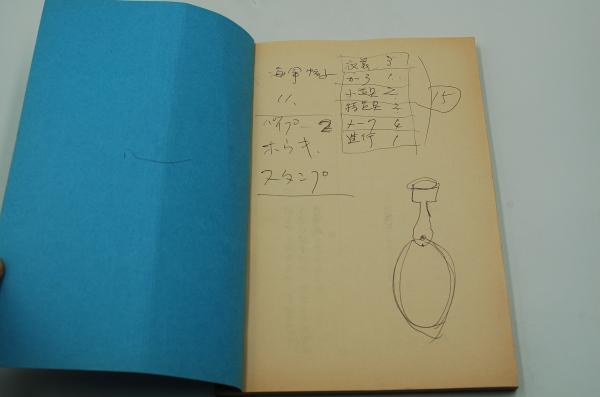 海軍帽子
〃
パイプ 2
ホウキ
スタンプ
衣裳 3
かつら 1
小道具 2
特道具 2
メーク 4
進行 1
15